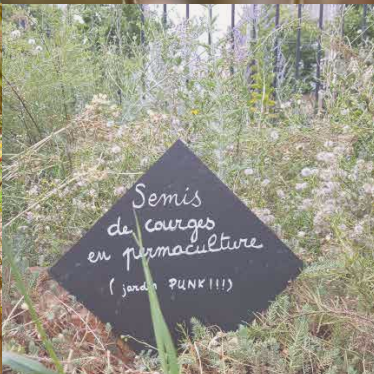 Semis
de courges
en permaculture
( jardin PUNK!!!)